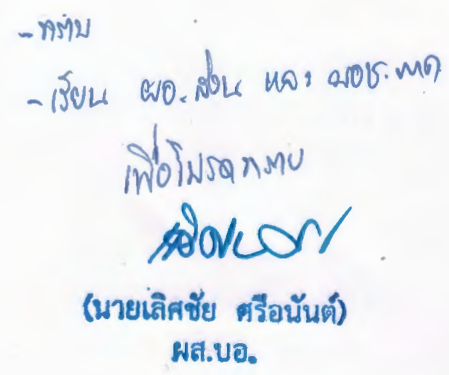 - ทราบ
- เรียน ผอ.ส่วน และ
เพื่อโปรดทราบ
(นายเลิศชัย ศรีอนันต์)
ผส.บอ.